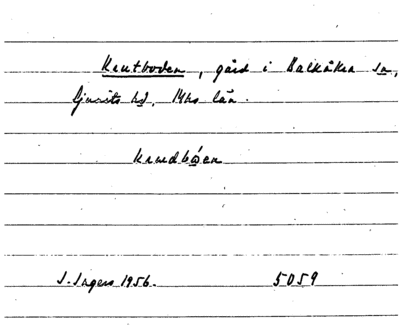 Krutboden, gård i Balkåkra sn,
Ljunits hd, Mhs län.
krudbóen
S. Ingers 1956. 5059